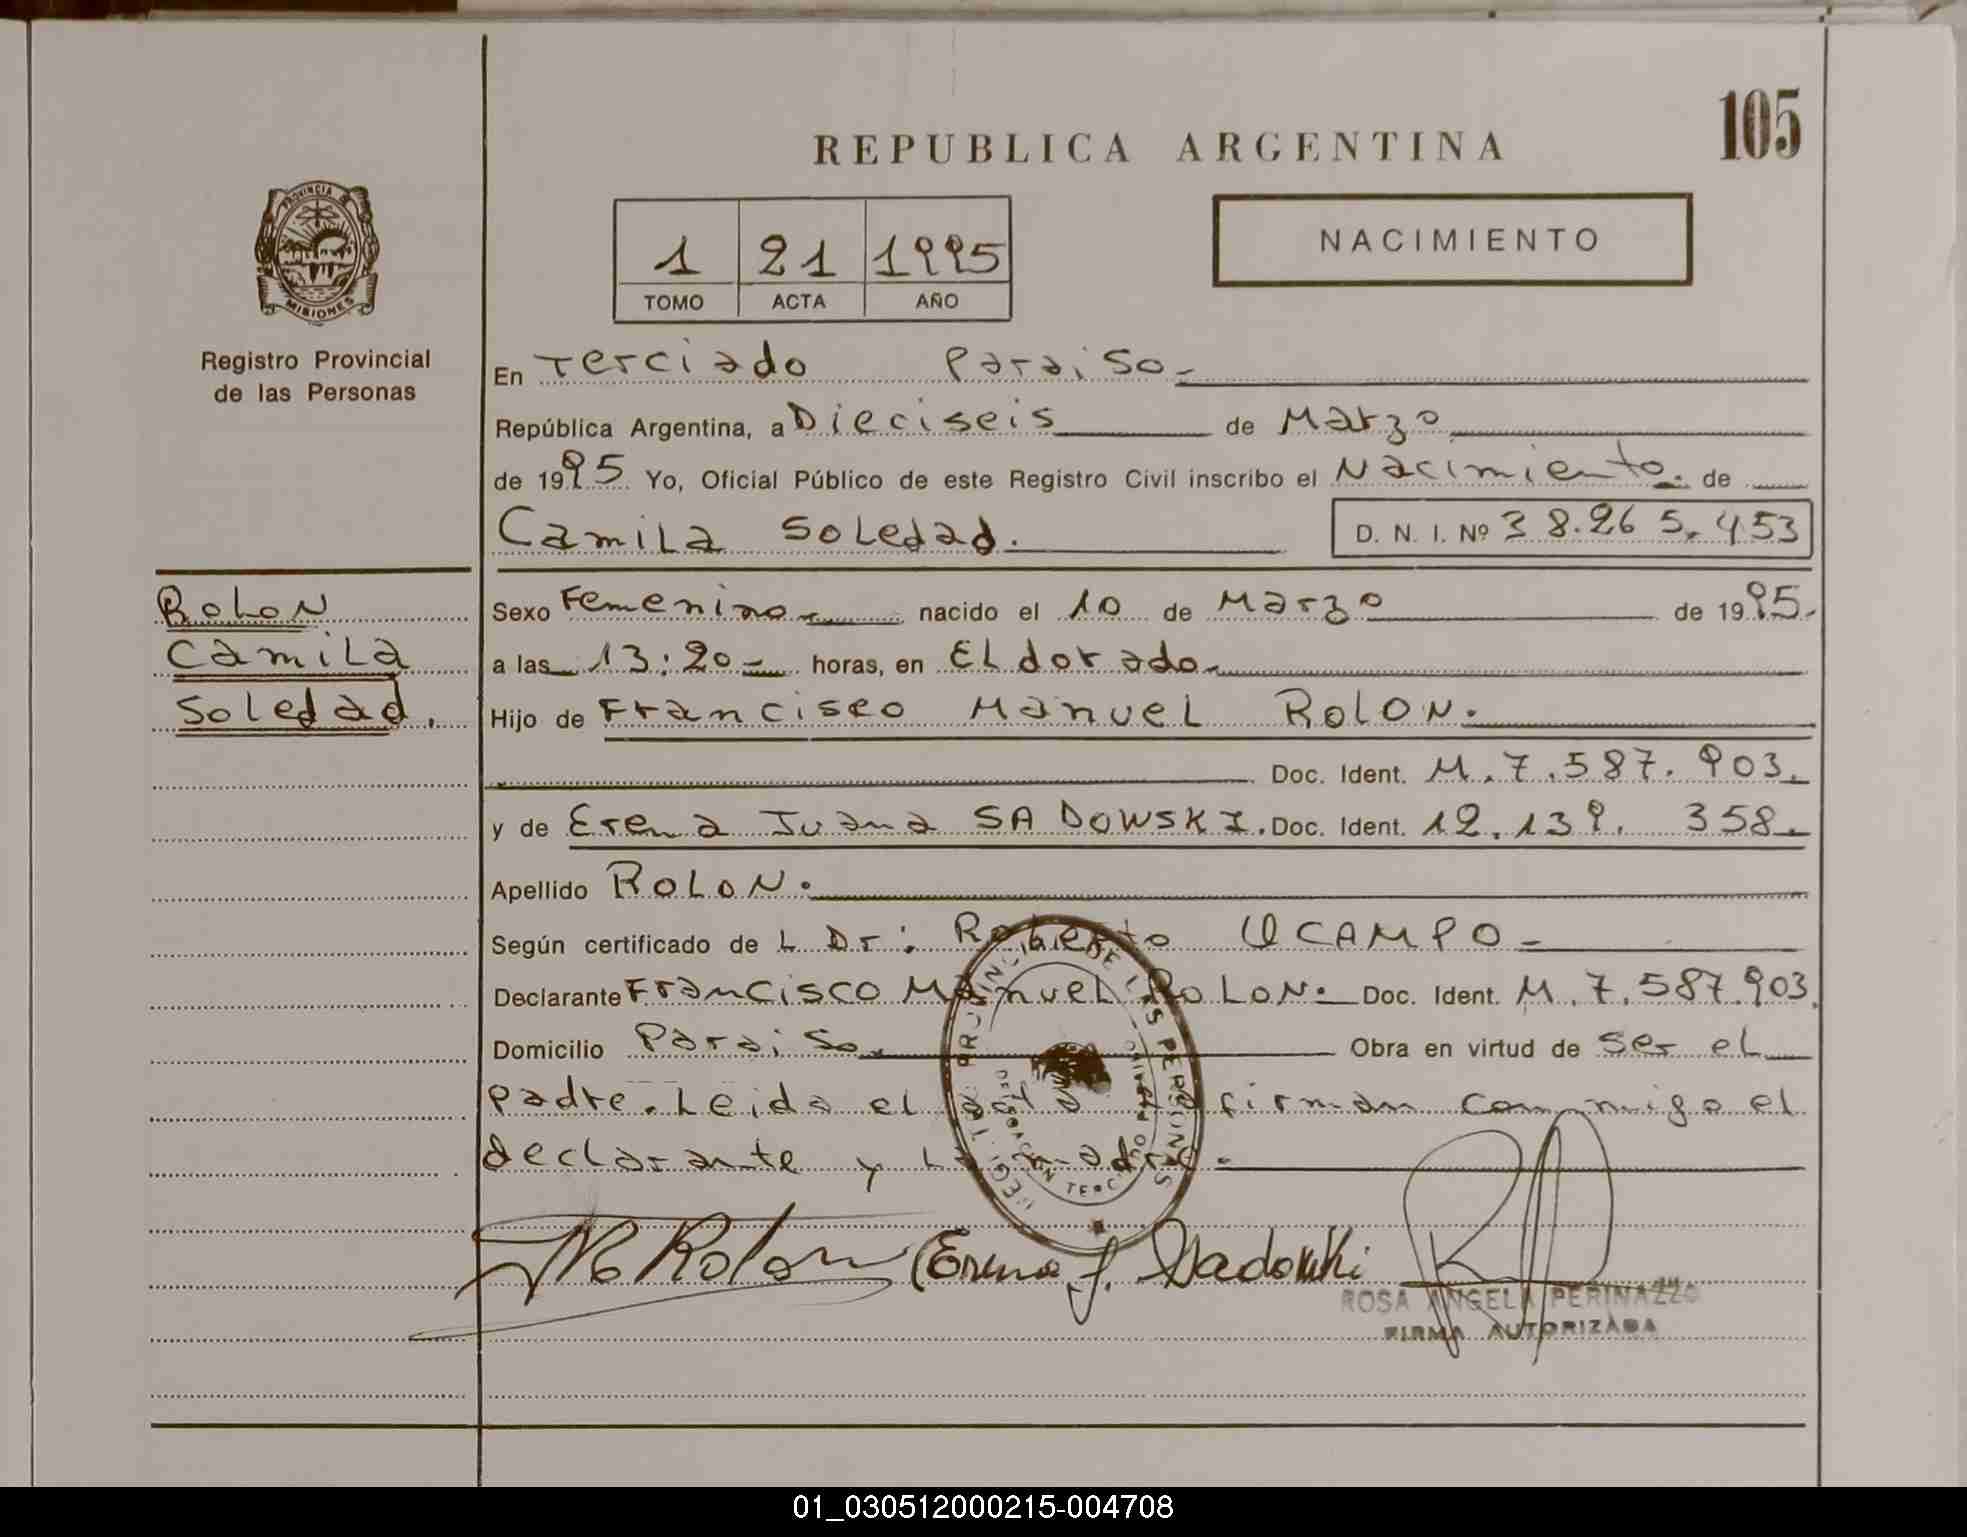 105
REPUBLICA ARGENTINA
PROVINCIA DE
MISIONES
Registro Provincial
de las Personas
1 21 1995
TOMO ACTA AÑO
NACIMIENTO
En Terciado Paraiso.-
República Argentina, a Dieciseis de Marzo
de 1995 Yo, Oficial Público de este Registro Civil inscribo el Nacimiento. de
Camila Soledad. D. N. I. Nº 38.265.453
ROLON
Camila
Soledad.
Sexo Femenino.- nacido el 10 de Marzo de 1995.
a las 13:20.- horas, en ELdorado.
Hijo de Francisco Manuel ROLON.
Doc. Ident. M.7.587.903.
y de Erena Juana SADOWSKI. Doc. Ident. 12.139.358.
Apellido ROLON.
Según certificado de L Dr: Roberto OCAMPO.-
Declarante Francisco Manuel ROLON. Doc. Ident. M.7.587.903.
Domicilio Paraiso. Obra en virtud de ser el
padre. Leida el firman conmigo el
declarante y La madre.
REGISTRO PROVINCIAL DE LAS PERSONAS
M Rolon Erena J. Sadowski
ROSA ANGELA PERINAZZO
FIRMA AUTORIZADA
01_030512000215-004708